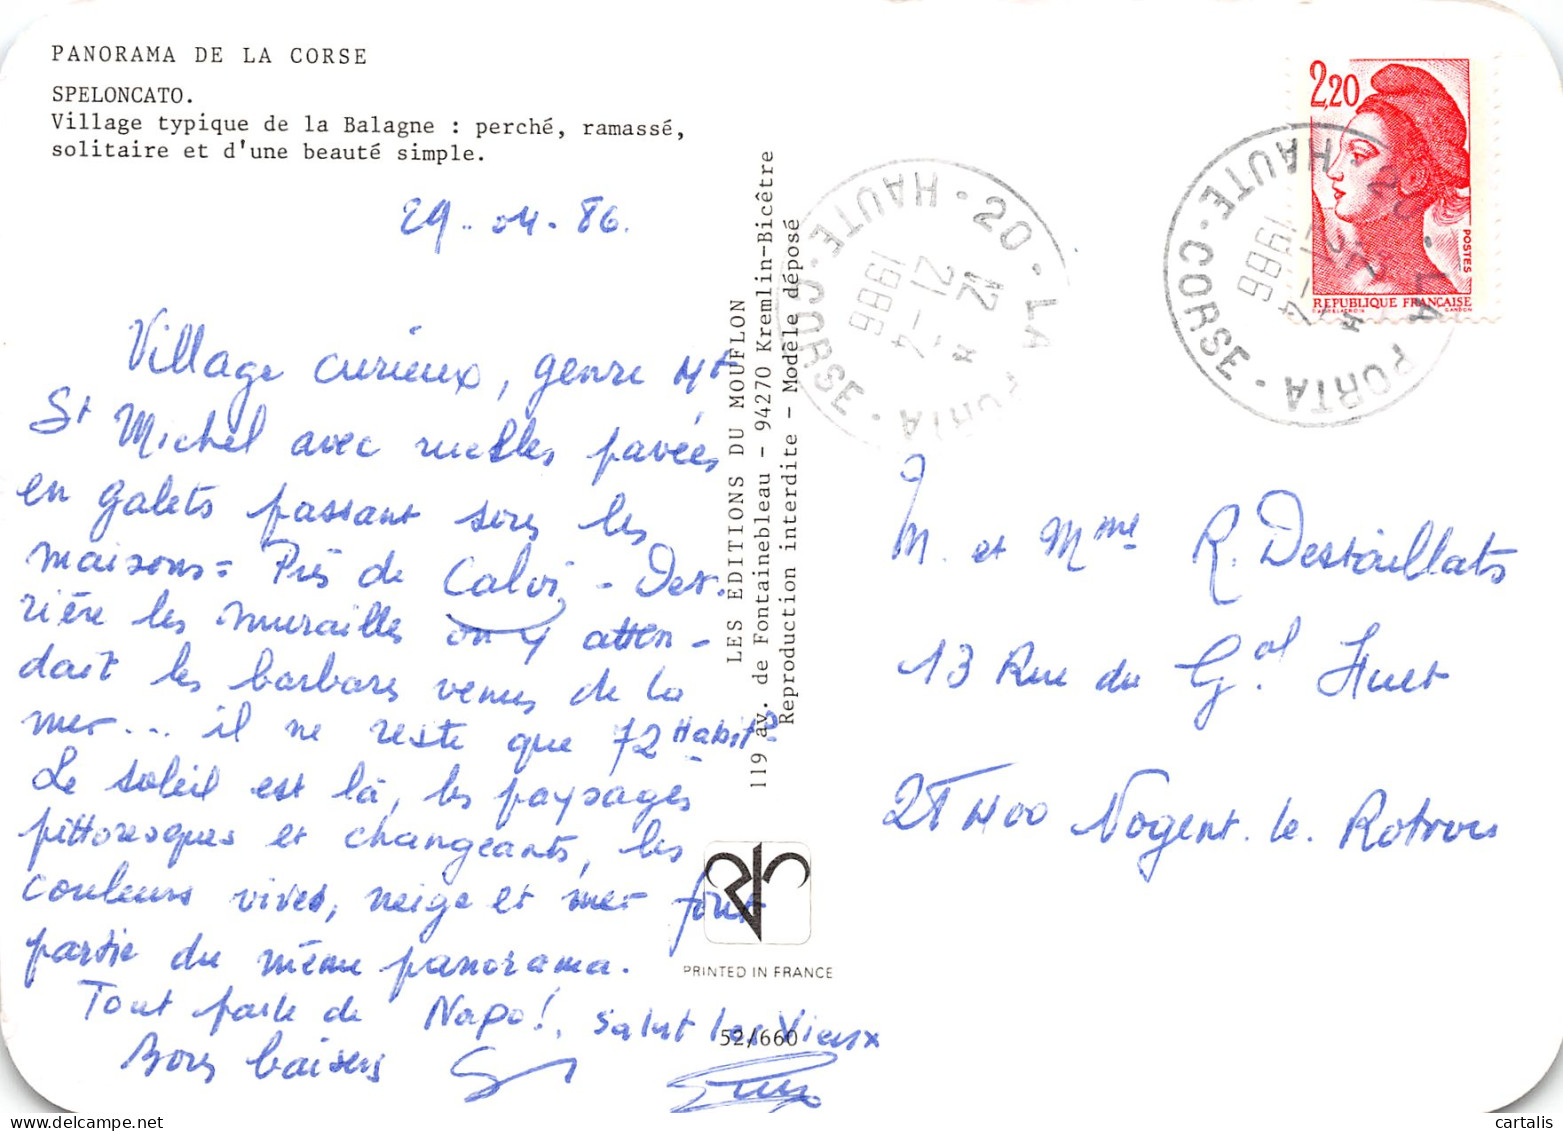 PANORAMA DE LA CORSE
SPELONCATO.
Village typique de la Balagne : perché, ramassé,
solitaire et d'une beauté simple.
29.. 04. 86.
Village curieux, genre Mt
St Michel avec ruelles pavées
en galets passant sous les
maisons = Près de Calvi, - Der-
rière les murailles on y atten-
dait les barbares venus de la
mer... il ne reste que 72 Habits
Le soleil est là, les paysages
pittoresques et changeants, les
couleurs vives, neige et mer font
partie du même panorama.
Tout parle de Napo!. Salut les Vieux
Bons baisers
LES EDITIONS DU MOUFLON
119 av. de Fontainebleau - 94270 Kremlin-Bicêtre
Reproduction interdite - Modèle déposé
PRINTED IN FRANCE
52/660
20 · LA PORTA · HAUTE-CORSE ·
12 *
21 - 4
1986
2,20
POSTES
REPUBLIQUE FRANÇAISE
D'APRES DELACROIX
GANDON
20 · LA PORTA · HAUTE-CORSE ·
21 - 4
1986
M. et Mme R. Destouillats
13 Rue du Gal. Huet
28400 Nogent. le. Rotrou
cartalis